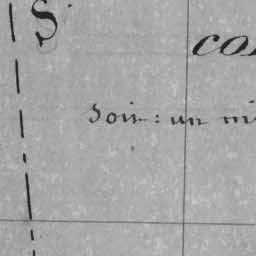 S
COM
Soit: un mi